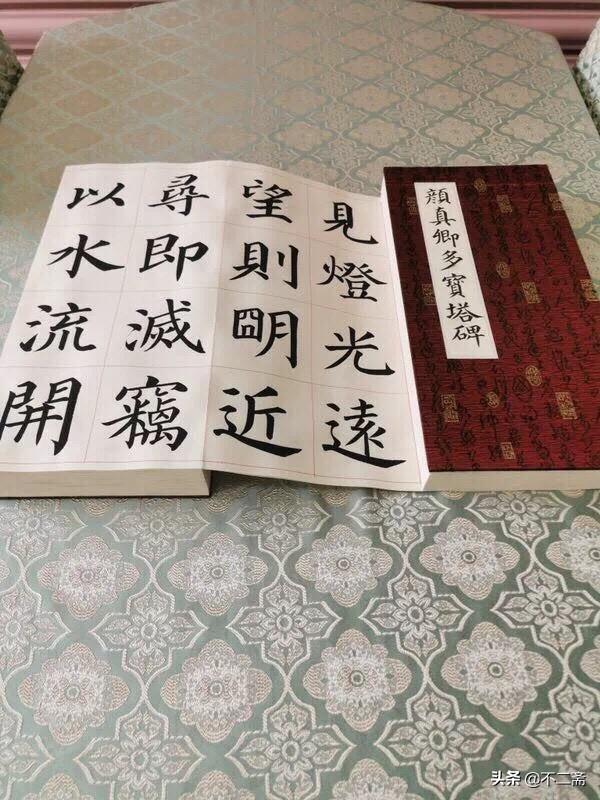 顔真卿多寶塔碑
見燈光遠
望則朙近
尋即滅竊
以水流開
头条 @不二斋